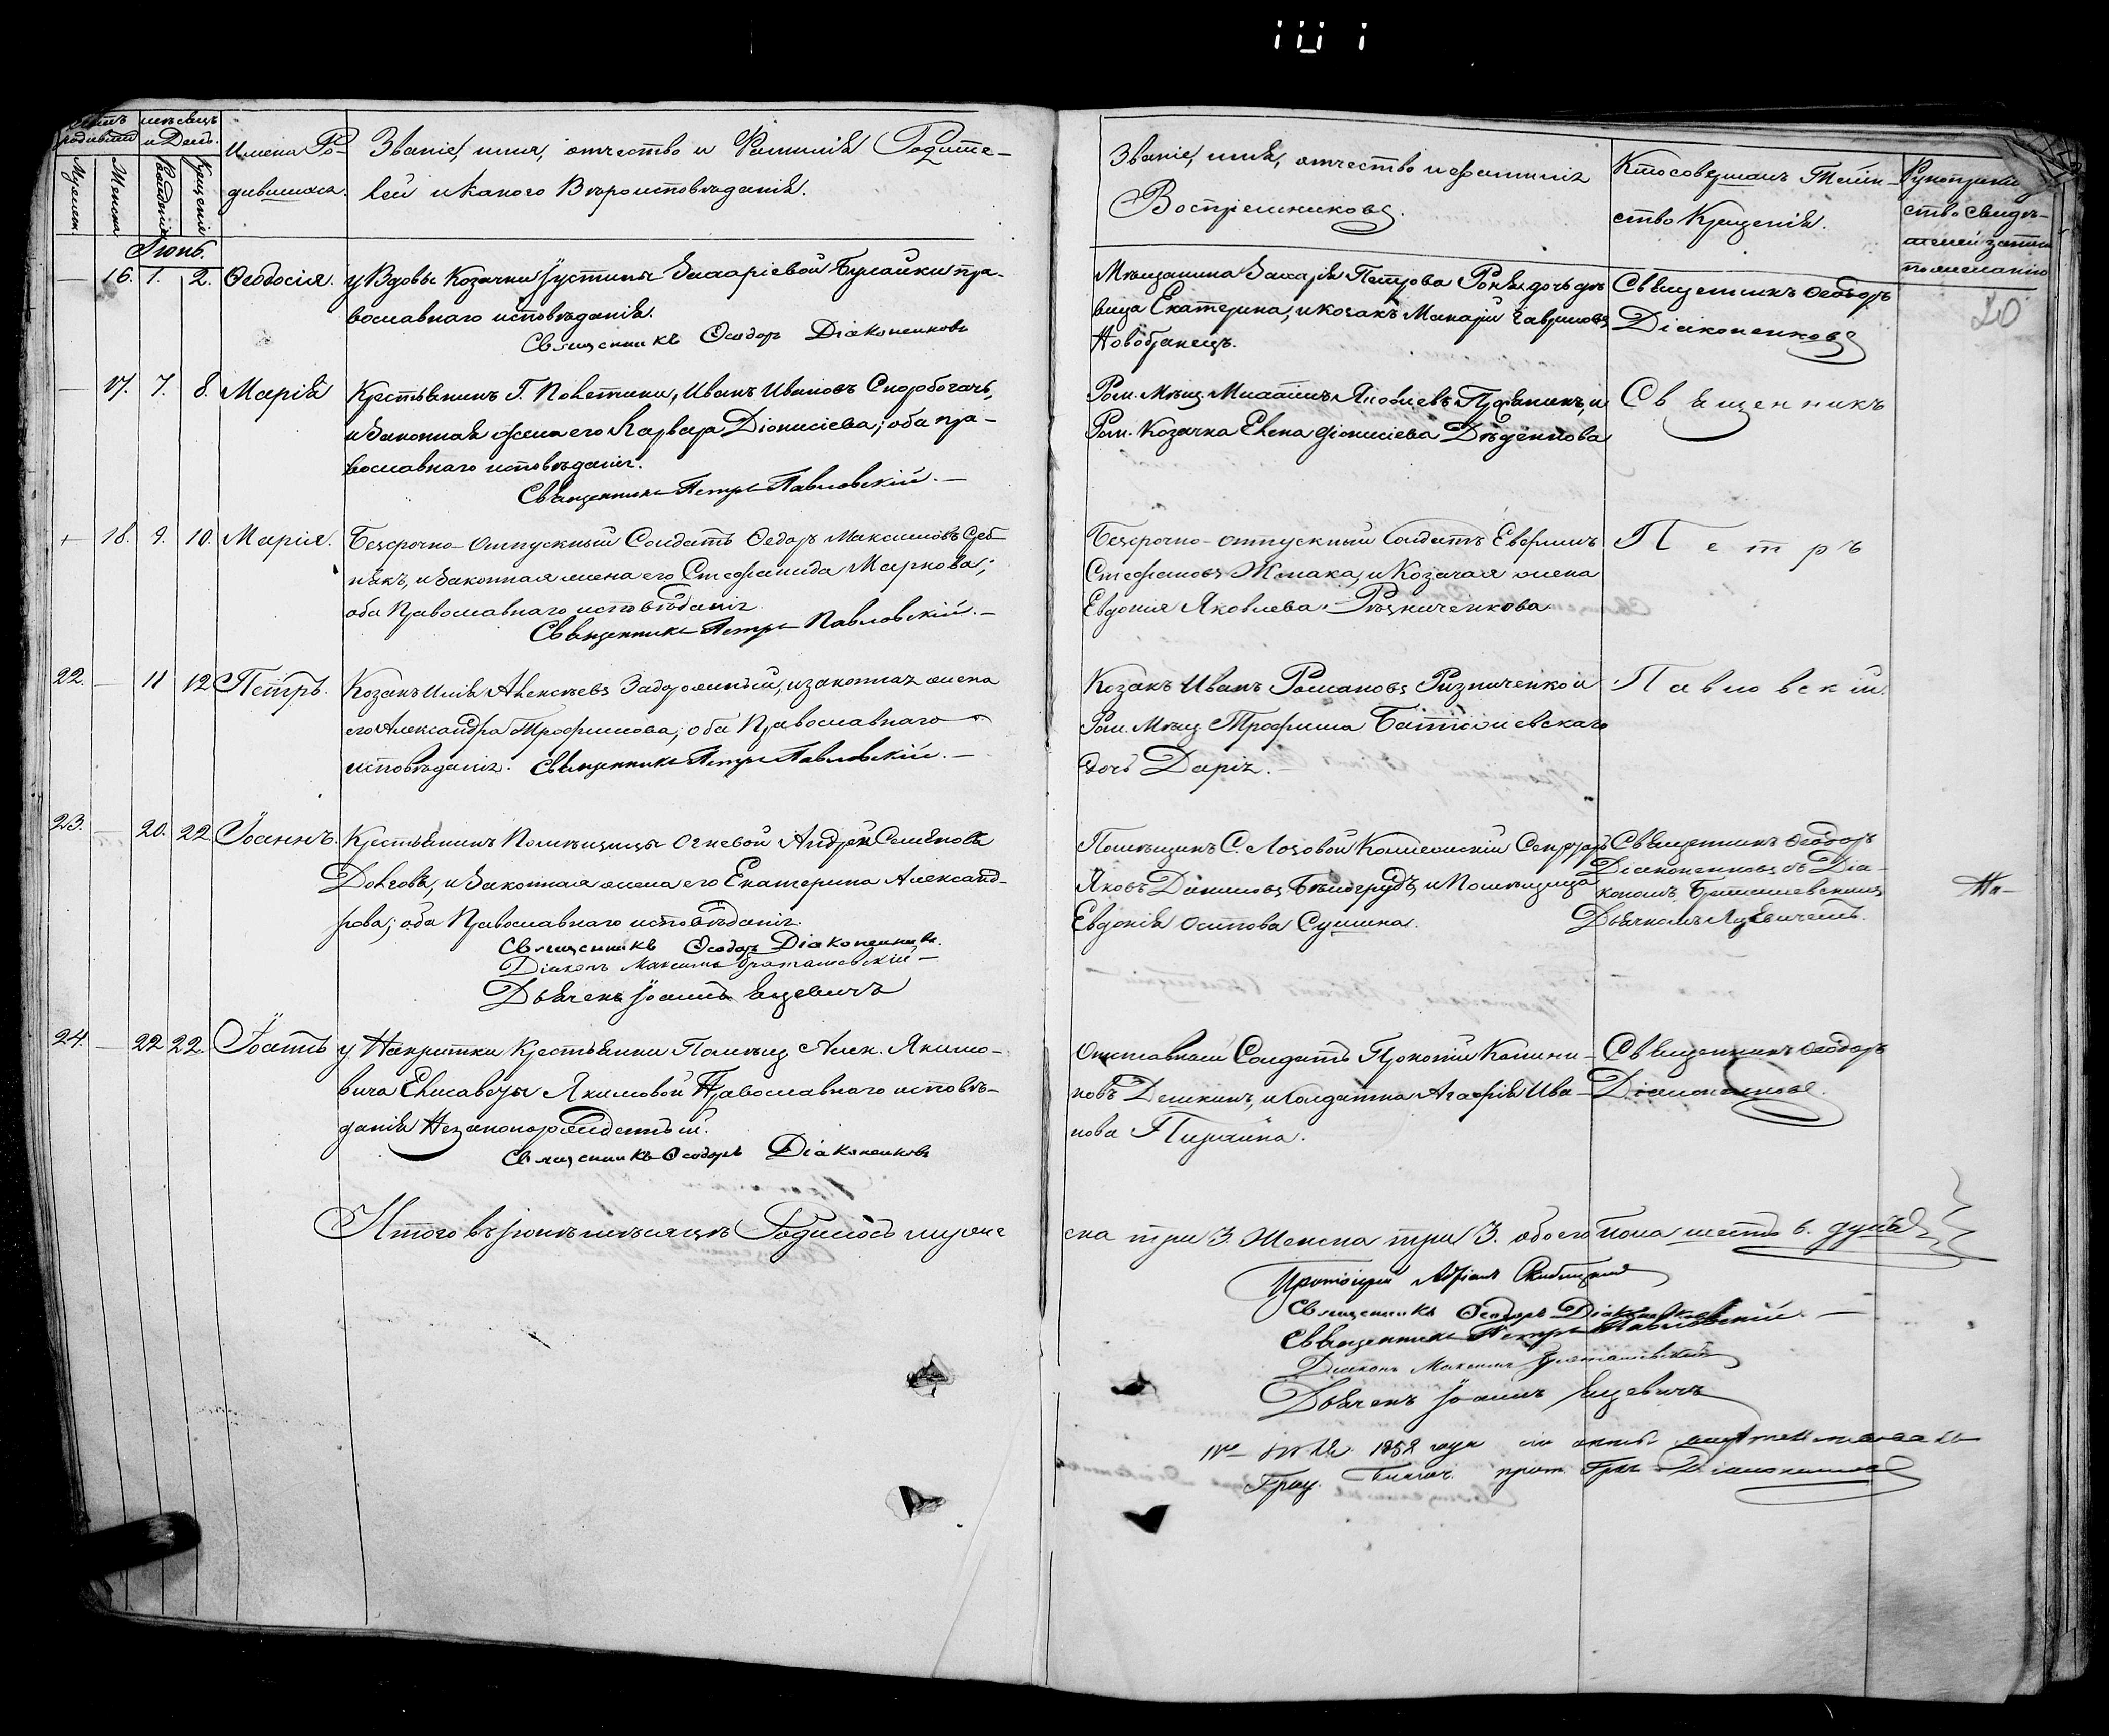 Счетъ родившихся
Мѣсяцъ и День.
Мужеск.
Женска
Рожденія
Крещенія
Имена Ро-
дившихся.
Званіе, имя, отчество и Фамилія Родите-
лей и какого Вѣроисповѣданія.
Званіе, имя, отчество и фамилія
Воспріемниковъ.
Кто совершалъ Таин-
ство Крещенія.
Рукоприклад
ство свидѣ-
телей записи
по желанію
20
Іюнь.
— 16. 1. 2. Ѳеодосія. у Вдовы Козачки Іустины Захаріевой Булайки пра-
вославнаго исповѣданія.
Священникъ Ѳеодоръ Діаконенковъ
Мѣщанина Захарія Петрова дочь дѣ
вица Екатерина, и козакъ Макарій Гавриловъ
Новобранецъ.
Священникъ Ѳеодоръ
Діаконенковъ
— 17. 7. 8. Марія Крестьянинъ Г. Полетики, Иванъ Ивановъ Скоробогачъ,
и Законная жена его Варвара Діонисіева; оба пра-
вославнаго исповѣданія.
Священникъ Петръ Павловскій. —
Ром. Мѣщ. Михаилъ Яковлевъ и
Ром. Козачка Елена Діонисіева Дѣденкова
Священникъ
18. 9. 10. Марія. Безсрочно-Отпускный Солдатъ Ѳедоръ Максимовъ Среб-
някъ, и Законная жена его Стефанида Маркова;
оба Православнаго исповѣданія.
Священникъ Петръ Павловскій. —
Безсрочно-отпускный Солдатъ Евфимъ
Стефановъ Жмака, и Козачая жена
Евдокія Яковлева Рѣзниченкова
Петръ
22. — 11 12 Петръ. Козакъ Илія Алексѣевъ и законная жена
его Александра Трофимова; оба Православнаго
исповѣданія. Священникъ Петръ Павловскій. —
Козакъ Иванъ Романовъ Ризниченко и
Ром. Мѣщ. Трофима
дочь Дарія.
Павловскій.
23. — 20. 22 Іоаннъ. Крестьянинъ Помѣщицы Огневой Андрей Семеновъ
Довговъ, и Законная жена его Екатерина Александ-
рова; оба Православнаго исповѣданія.
Священникъ Ѳеодоръ Діаконенковъ.
Діаконъ Максимъ Браташевскій —
Дьячекъ Іоаннъ Яцевичъ
Помѣщикъ С. Лозовой Коллежскій Секретарь
Яковъ Даниловъ Бѣлогрудъ, и Помѣщица
Евдокія Осипова Сушкина.
Священникъ Ѳеодоръ
Діаконенковъ съ Діа-
кономъ Браташевскимъ
Дьячкомъ Яцевичемъ.
24. — 22 22. Іоаннъ у Накритки Крестьянки Помѣщ. Алек. Якимо-
вича Елисаветы Якимовой Православнаго исповѣ-
данія Незаконорожденный.
Священникъ Ѳеодоръ Діаконенковъ
Отставный Солдатъ Прокопій Калини-
ковъ Дешкинъ, и Солдатка Агафія Ива-
нова
Священникъ Ѳеодоръ
Діаконенковъ.
Итого въ Іюнѣ мѣсяцѣ Родилось мужес
ска три 3. Женска три 3. обоего пола шесть 6. душъ
Протоіерей Адріанъ
Священникъ Ѳеодоръ Діаконенковъ
Священникъ Петръ Павловскій. —
Діаконъ Максимъ Браташевскій
Дьячекъ Іоаннъ Яцевичъ
1858 года